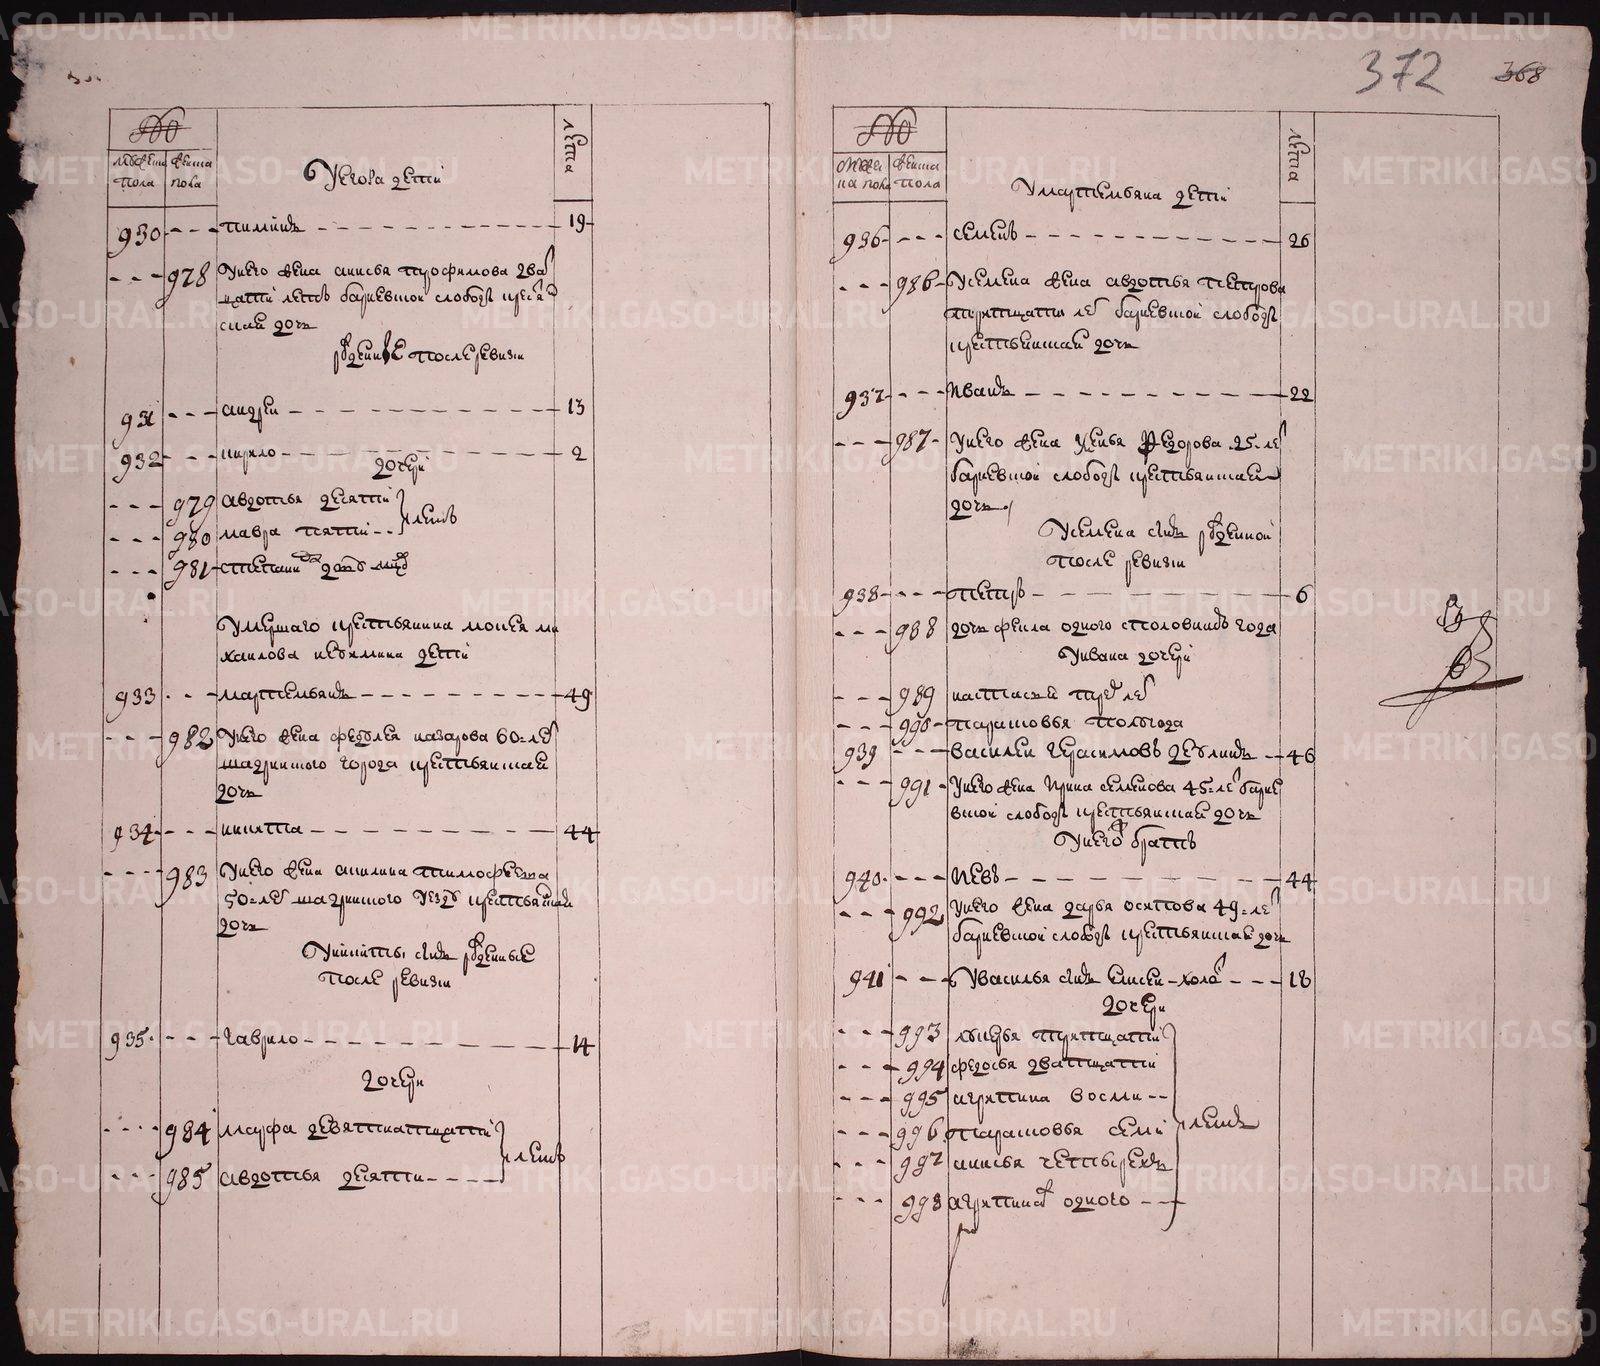 №
мужеска пола
женска пола
лета
Уегора детей
930 - - - пиминъ - - - 19
- - - 978 Унего жена анисья трофимова два
цати летъ багаевской слободы кресьян
ская дочь
рожденные после ревизи
931 - - - андрей - - - 13
932 - - - кирило - - - 2
дочери
- - - 979 авдотья десяти
- - - 980 мавра пяти - - летъ
- - - 981 степанида
Умершаго крестьянина моисея ми
хаилова детей
933 - - - мартемьянъ - - - 49
- - - 982 Унего жена федосья назарова 60=ле
шадринского города крестьянская
дочь
934 - - - никита - - - 44
- - - 983 Унего жена акилина тимофеева
50=ле шадринского уезду крестьянская
дочь
Уникиты сынъ рожденные
после ревизи
935 - - - гаврило - - - 14
дочери
- - - 984 марфа девятнатцати
- - - 985 авдотья десяти - - - летъ
372
368
№
мужеска пола
женска пола
лета
Умартемьяна детей
936 - - - семенъ - - - 26
- - - 986 Усемена жена авдотья петрова
тритцати ле слободы
крестьянская дочь
937 - - - иванъ - - - 22
- - - 987 Унего жена федорова 25=ле
слободы крестьянская
дочь
Усемена сынъ рожденной
после ревизи
938 - - - петръ - - - 6
- - - 988 дочь фекла одного споловиною года
Уивана дочери
- - - 989 настасья трех ле
- - - 990 парасковья полугода
939 - - - василей герасимовъ - - - 46
- - - 991 Унего жена ирина семенова 45=ле
слободы крестьянская дочь
Унего братъ
940 - - - иевъ - - - 44
- - - 992 Унего жена дарья осипова 49=ле
слободы крестьянская дочь
941 - - - Увасилья сынъ елисей - холо - - - 18
дочери
- - - 993 лукерья тритцати
- - - 994 федосья дватцати
- - - 995 агрипина восми - -
- - - 996 парасковья семи летъ
- - - 997 анисья четырехъ
- - - 998 агрипина одного - -